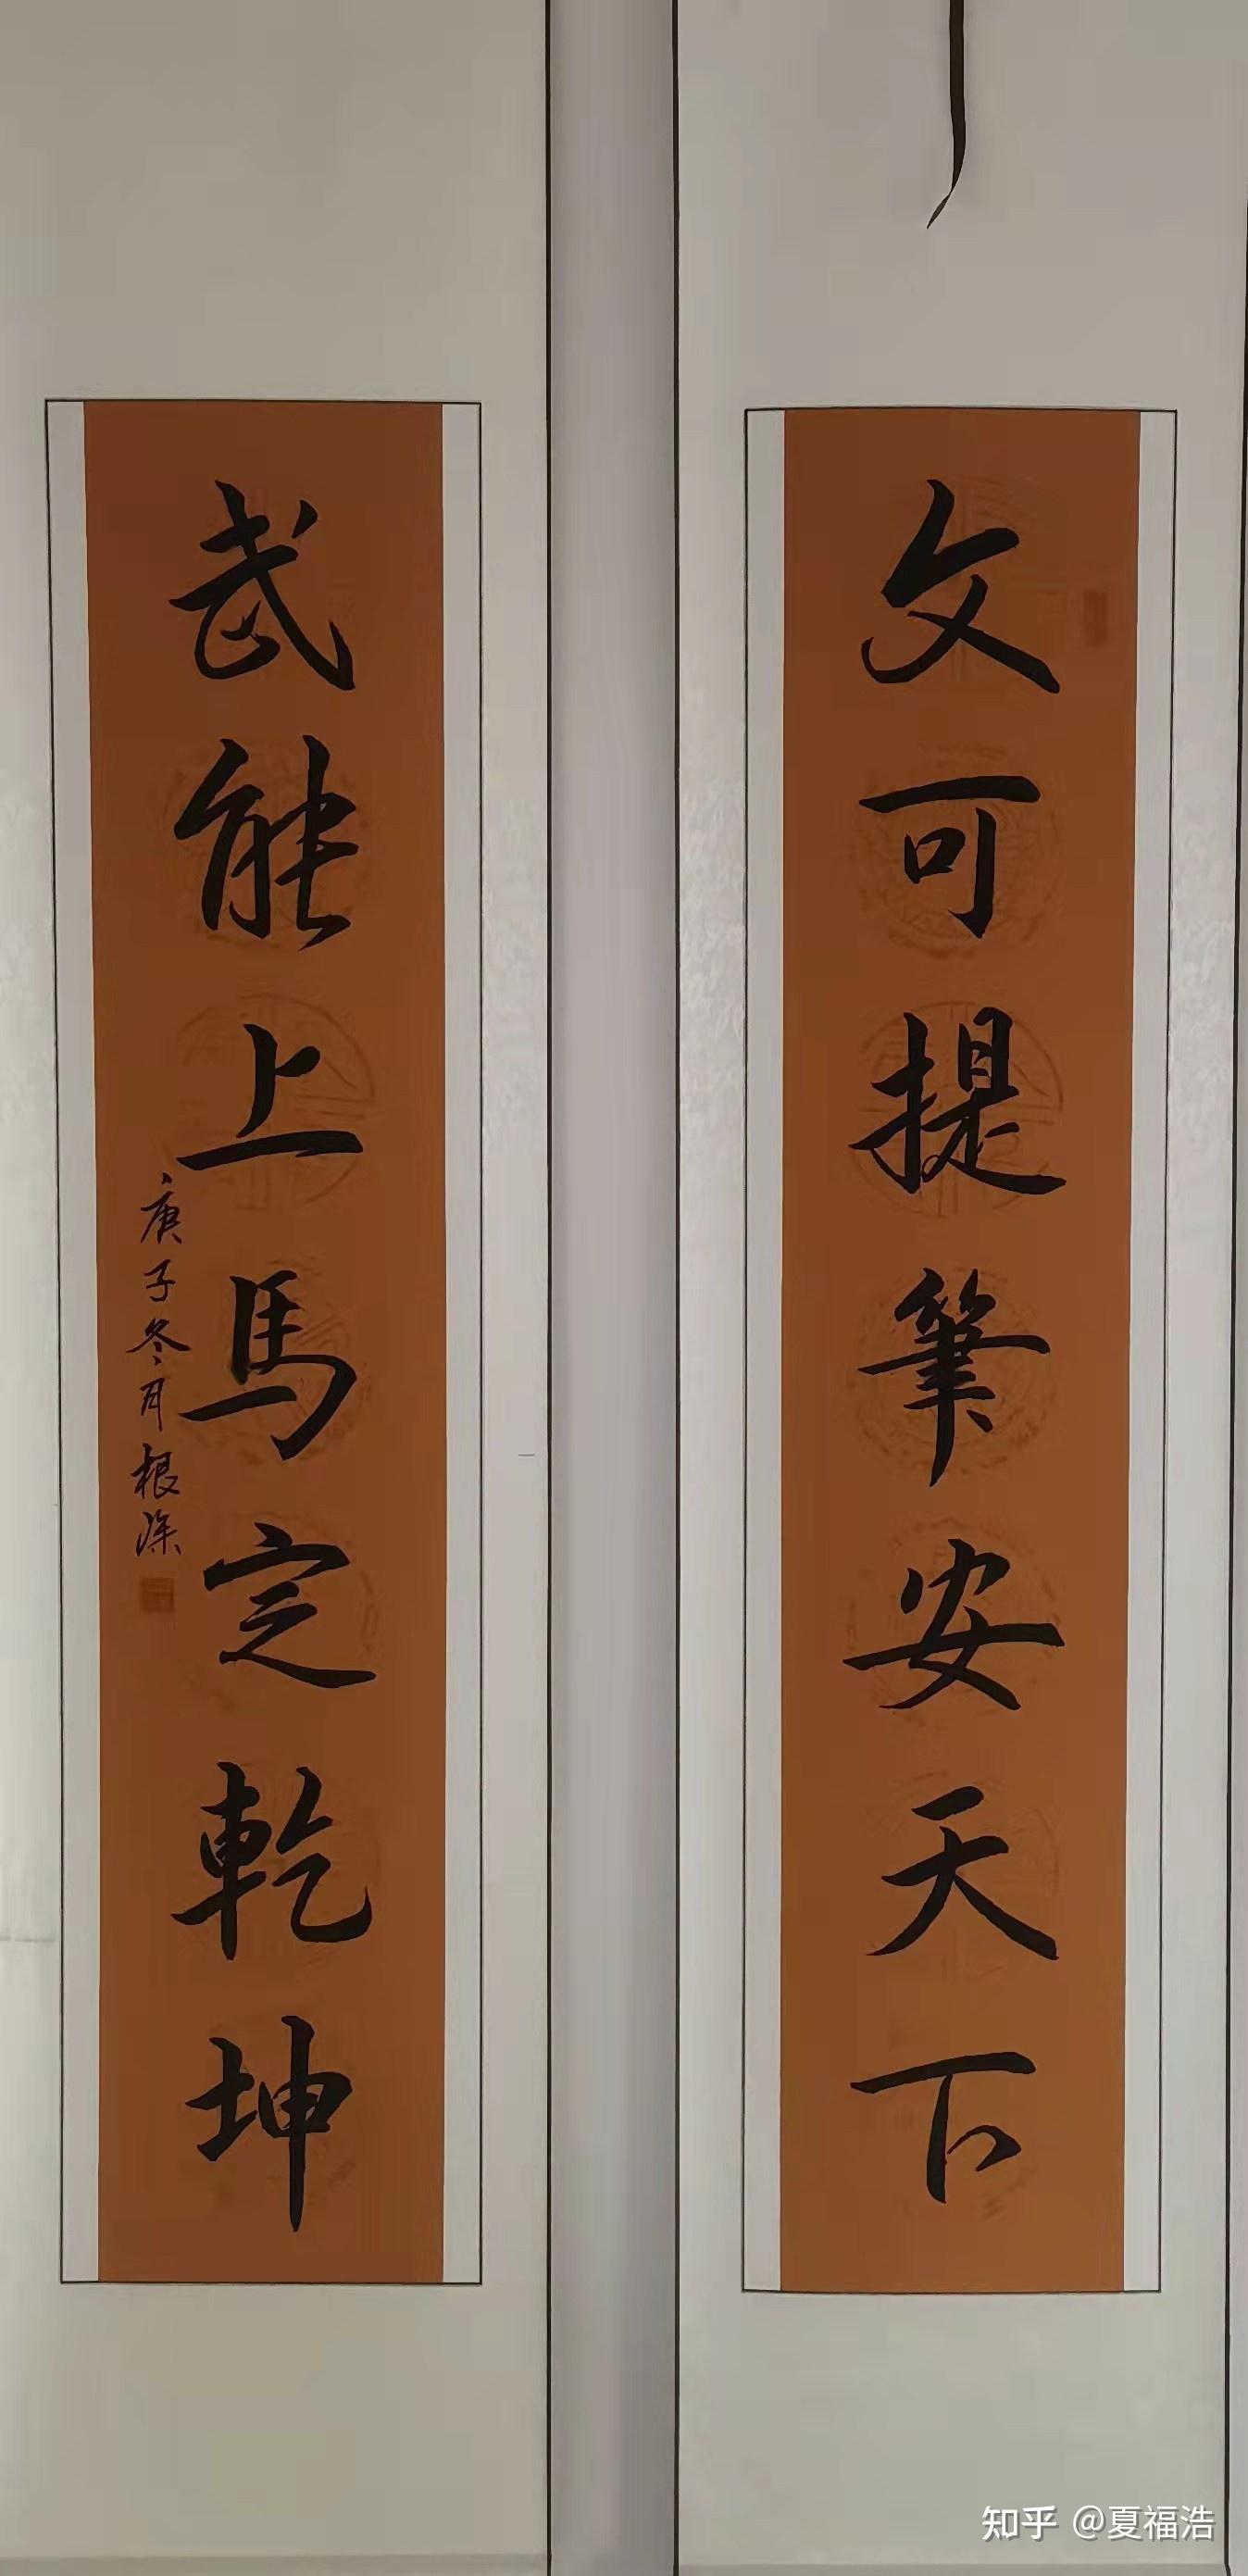 文可提筆安天下
武能上馬定乾坤
庚子冬月根深
知乎 @夏福浩